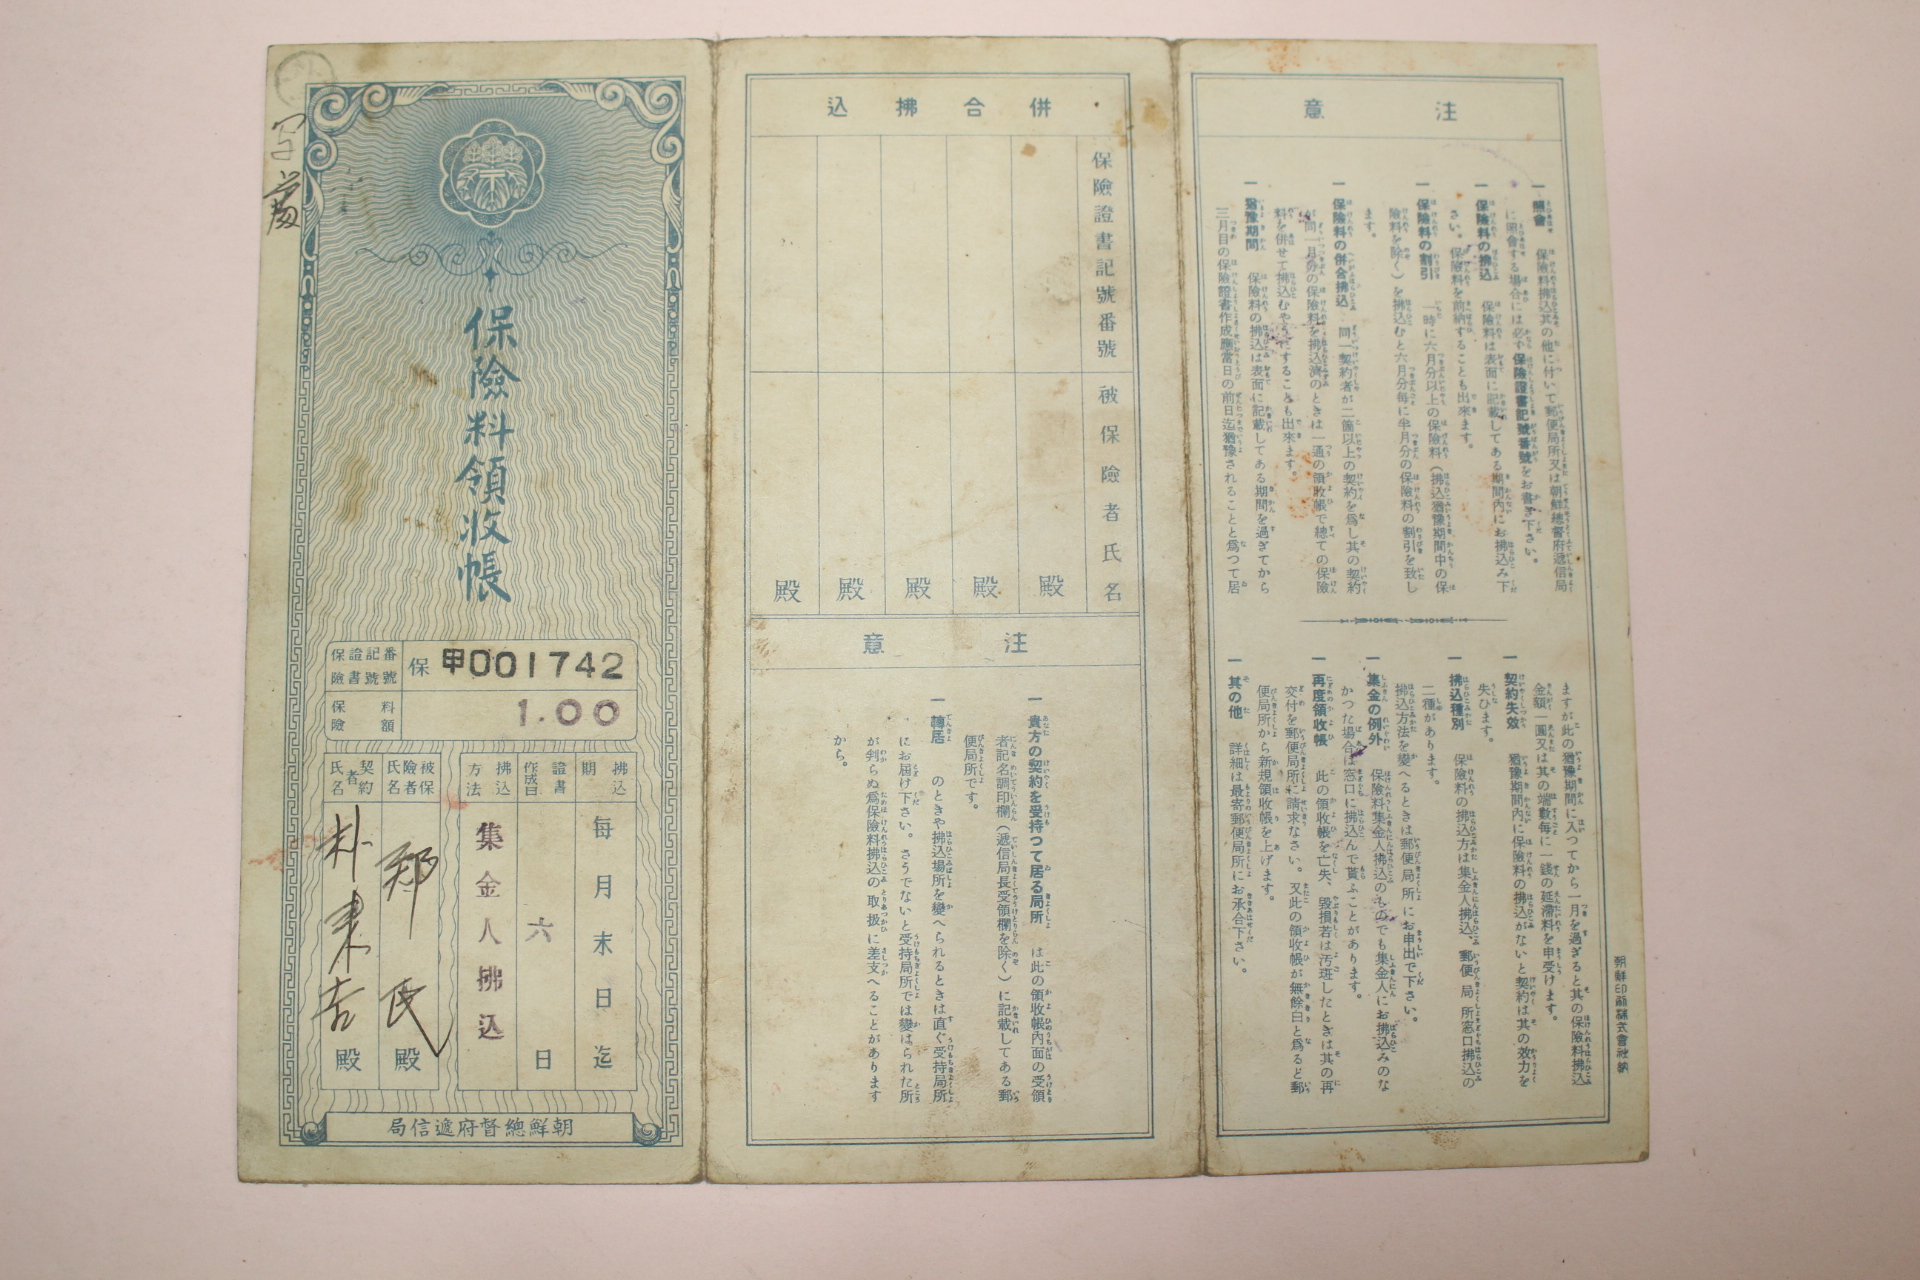 保險料領收帳
保險證書記號番號
保 甲001742
保險料額
1.00
拂込期
每月末日迄
證書作成日
六日
拂込方法
集金人拂込
被保險者氏名
鄭氏殿
契約者氏名
殿
朝鮮總督府遞信局
併合拂込
保險證書記號番號
被保險者氏名
殿
殿
殿
殿
殿
注意
一 貴方の契約を受持つて居る局所 は此の領收帳內面の受領
者記名調印欄（遞信局長受領欄を除く）に記載してある郵
便局所です。
一 轉居 のときや拂込場所を變へられるときは直ぐ受持局所
にお屆け下さい。さうでないと受持局所では變はられた所
が判らぬ爲保險料拂込の取扱に差支へることがあります
から。
注意
一 照會 保險料拂込其の他に付いて郵便局所又は朝鮮總督府遞信局
に照會する場合には必ず保險證書記號番號をお書き下さい。
一 保險料の拂込 保險料は表面に記載してある期間內にお拂込み下
さい。保險料を前納することも出來ます。
一 保險料の割引 一時に六月分以上の保險料（拂込猶豫期間中の保
險料を除く）を拂込むと六月分每に半月分の保險料の割引を致し
ます。
一 保險料の併合拂込 同一契約者が二箇以上の契約を爲し其の契約
が同一月分の保險料を拂込濟のときは一通の領收帳で總ての保險
料を併せて拂込むやうにすることも出來ます。
一 猶豫期間 保險料の拂込は表面に記載してある期間を過ぎてから
三月目の保險證書作成應當日の前日迄猶豫されることと爲つて居
ますが此の猶豫期間に入つてから一月を過ぎると其の保險料拂込
金額一圓又は其の端數每に一錢の延滯料を申受けます。
一 契約失效 猶豫期間內に保險料の拂込がないと契約は其の效力を
失ひます。
一 拂込種別 保險料の拂込方は集金人拂込、郵便局所窓口拂込の
二種があります。
拂込方法を變へるときは郵便局所にお申出で下さい。
一 集金の例外 保險料集金人拂込のものでも集金人にお拂込みのな
かつた場合は窓口に拂込んで貰ふことがあります。
一 再度領收帳 此の領收帳を亡失、毀損若は汚斑したときは其の再
交付を郵便局所に請求なさい。又此の領收帳が無餘白と爲ると郵
便局所から新規領收帳を上げます。
一 其の他 詳細は最寄郵便局所にお承合下さい。
朝鮮印刷株式會社納